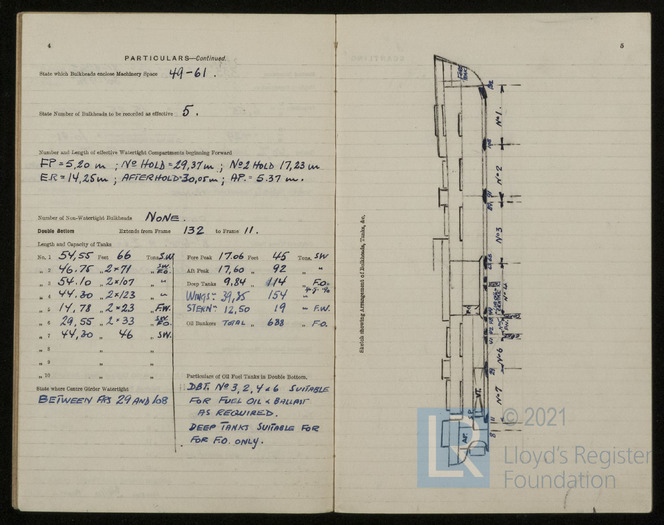 4
PARTICULARS—Continued.
State which Bulkheads enclose Machinery Space 49-61.
State Number of Bulkheads to be recorded as effective 5.
Number and Length of effective Watertight Compartments beginning Forward
FP = 5,20 m ; No HOLD = 29,37m ; No2 HOLD 17,23 m
E.R = 14,25m ; AFTERHOLD=30,05m ; AP. = 5.37 m.
Number of Non-Watertight Bulkheads NONE.
Double Bottom Extends from Frame 132 to Frame 11.
Length and Capacity of Tanks
No. 1 54,55 Feet 66 Tons S.W. Fore Peak 17.06 Feet 45 Tons. SW
„ 2 46.75 „ 2×71 „ S.W. F.O. Aft Peak 17,60 „ 92 „ „
„ 3 54.10 „ 2×107 „ „ Deep Tanks 9,84 „ 114 „ F.O.
„ 4 44.30 „ 2×123 „ „ WINGS- „ 154 „
„ 5 14,78 „ 2×23 „ F.W. STERN- 12,50 19 „ F.W.
„ 6 29,55 „ 2×33 „ S.W. F.O. Oil Bunkers TOTAL „ 638 „ F.O.
„ 7 44,30 „ 46 „ SW.
„ 8 „ „
„ 9 „ „
„ 10 „ „
Particulars of Oil Fuel Tanks in Double Bottom.
State where Centre Girder Watertight
BETWEEN FRS 29 AND 108
DBT. No 3, 2, 4 & 6 SUITABLE
FOR FUEL OIL & BALLAST
AS REQUIRED.
DEEP TANKS SUITABLE FOR
FOR F.O. ONLY.
5
Sketch showing Arrangement of Bulkheads, Tanks, &c.
No 1
No 2
No 3
No 6
No 7
© 2021
LR
Lloyd's Register
Foundation